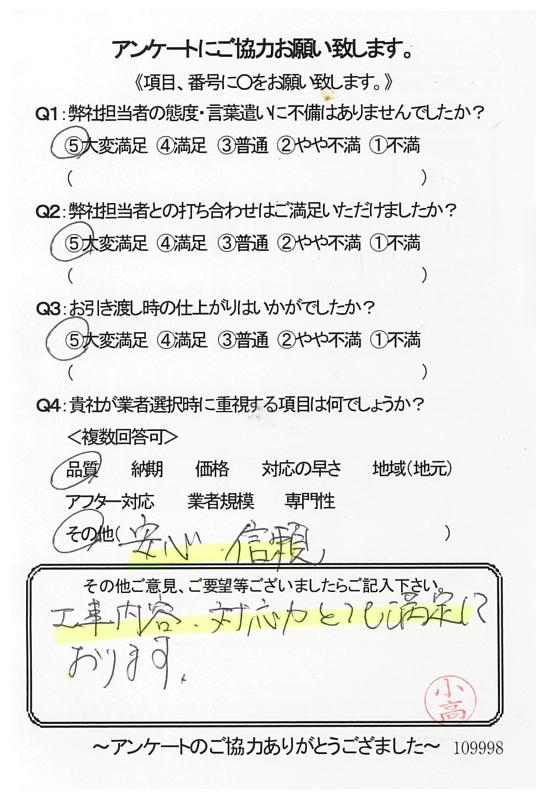 アンケートにご協力お願い致します。
《項目、番号に〇をお願い致します。》
Q1：弊社担当者の態度・言葉遣いに不備はありませんでしたか？
⑤大変満足 ④満足 ③普通 ②やや不満 ①不満
( )
Q2：弊社担当者との打ち合わせはご満足いただけましたか？
⑤大変満足 ④満足 ③普通 ②やや不満 ①不満
( )
Q3：お引き渡し時の仕上がりはいかがでしたか？
⑤大変満足 ④満足 ③普通 ②やや不満 ①不満
( )
Q4：貴社が業者選択時に重視する項目は何でしょうか？
＜複数回答可＞
品質 納期 価格 対応の早さ 地域(地元)
アフター対応 業者規模 専門性
その他( 安心、信頼、 )
その他ご意見、ご要望等ございましたらご記入下さい。
工事内容、対応力とても満足して
おります。
小
高
～アンケートのご協力ありがとうござました～ 109998